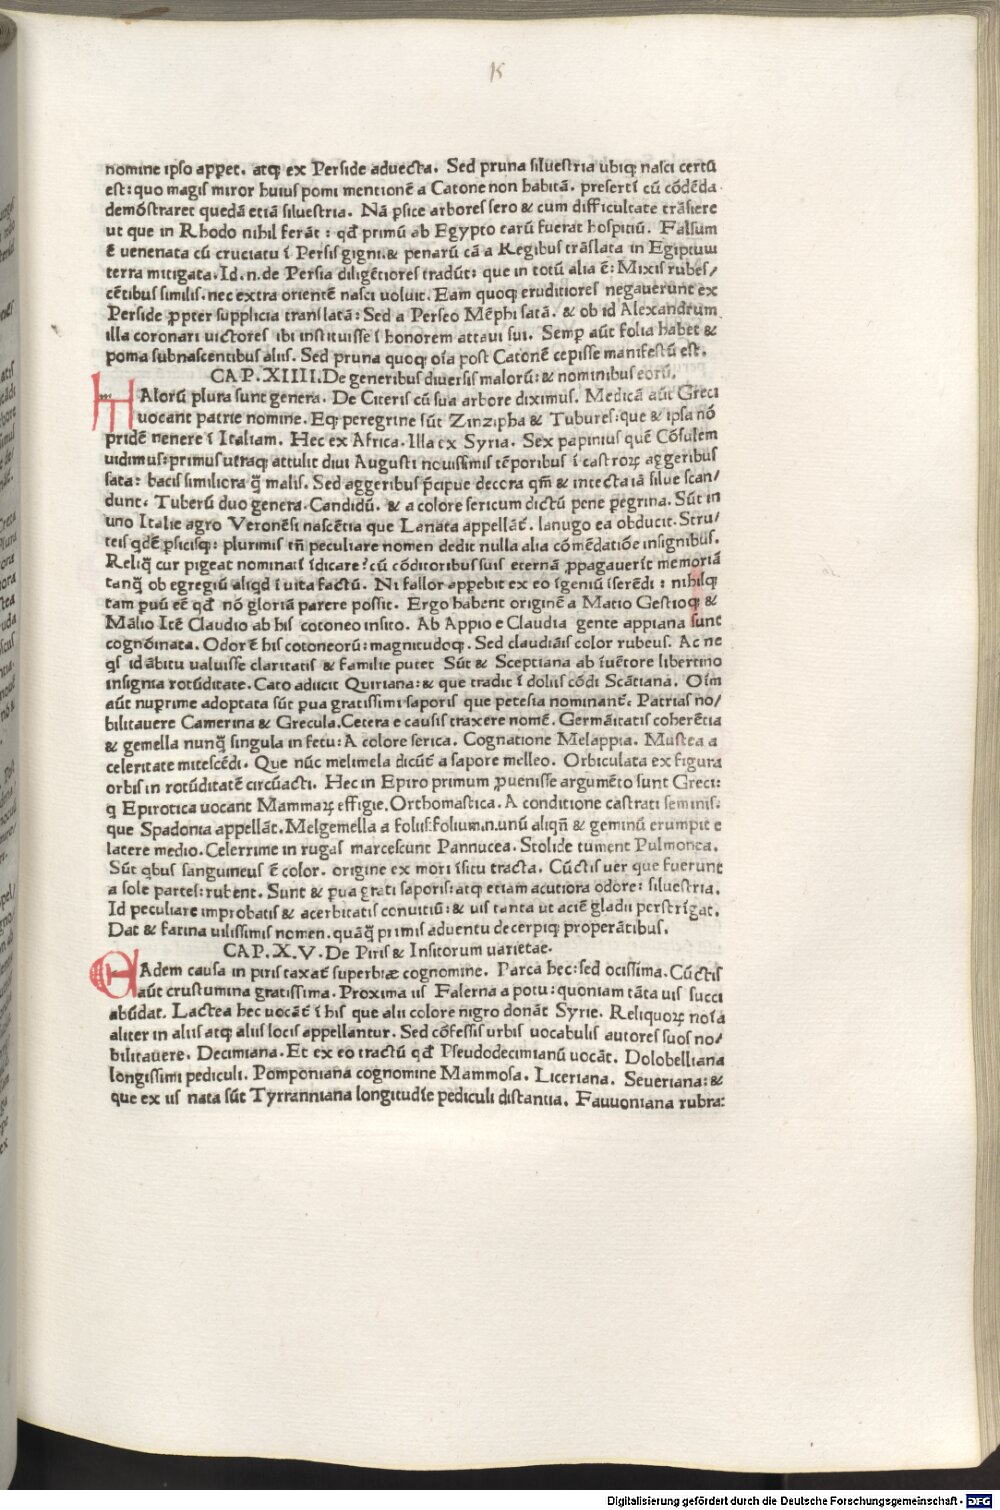 15
nomine ipso apꝑet. atqꝫ ex Perside aduecta. Sed pruna siluestria ubiqꝫ nasci certũ
est: quo magis miror huius pomi mentionẽ a Catone non habitã. presertĩ cũ cõdẽda
demõstraret quedã etiã siluestria. Nã psice arbores sero & cum difficultate trãsiere
ut que in Rhodo nihil ferãt: qd primũ ab Egypto earũ fuerat hospitiũ. Falsum
ẽ uenenata cũ cruciatu ĩ Persis gigni. & penarũ cã a Regibus trãslata in Egiptum
terra mitigata. Id .n. de Persia diligẽtiores tradũt: que in totũ alia ẽ: Mixis rubes/
cẽtibus similis. nec extra orientẽ nasci uoluit. Eam quoqꝫ eruditiores negauerunt ex
Perside ꝓpter supplicia translatã: Sed a Perseo Mẽphi satã. & ob id Alexandrum
illa coronari uictores ibi instituisse ĩ honorem attaui sui. Semꝑ aũt folia habet &
poma subnascentibus aliis. Sed pruna quoqꝫ oĩa post Catonẽ cepisse manifestũ est.
CAP. XIIII. De generibus diuersis malorũ: & nominibus eorũ.
m
MAlorũ plura sunt genera. De Citeris cũ sua arbore diximus. Medicã aũt Greci
uocant patrie nomine. Eqꝫ peregrine sũt Zinzipha & Tubures: que & ipsa nõ
pridẽ uenere ĩ Italiam. Hec ex Africa. Illa ex Syria. Sex papinius quẽ Cõsulem
uidimus: primus utraqꝫ attulit diui Augusti nouissimis tẽporibus ĩ castroꝝ aggeribus
sata: bacis similiora q̃ malis. Sed aggeribus p̃cipue decora qm̃ & in tecta iã silue scan/
dunt. Tuberũ duo genera. Candidũ. & a colore sericum dictũ pene ꝑegrina. Sũt in
uno Italie agro Veronẽsi nascẽtia que Lanata appellãt. lanugo ea obducit. Stru/
teis qdẽ ꝑsicisqꝫ: plurimis tñ peculiare nomen dedit nulla alia cõmẽdatiõe insignibus.
Reliq̃ cur pigeat nominatĩ ĩdicare? cũ cõditoribus suis eternã ꝓpagauerit memoriã
tanq̃ ob egregiũ aliqd ĩ uita factũ. Ni fallor apꝑebit ex eo ĩgeniũ ĩserẽdi: nihilqꝫ
tam ꝑuũ eẽ qd nõ gloriã parere possit. Ergo habent originẽ a Matio Gestioqꝫ &
Mãlio Itẽ Claudio ab his cotoneo insito. Ab Appio e Claudia gente appiana sunt
cognõinata. Odor ẽ his cotoneorũ: magnitudoqꝫ. Sed claudiãis color rubeus. Ac ne
qs id ãbitu ualuisse claritatis & familie putet Sũt & Sceptiana ab ĩuẽtore libertino
insignia rotũditate. Cato adiicit Quiriana: & que tradit ĩ doliis cõdi Scãtiana. Oĩm
aũt nuprime adoptata sũt ꝑua gratissimi saporis que petesia nominanť. Patrias no/
bilitauere Camerina & Grecula. Cetera e causis traxere nomẽ. Germãitatis coherẽtia
& gemella nunq̃ singula in fetu: A colore serica. Cognatione Melappia. Mustea a
celeritate mitescẽdi. Que nũc melimela dicũť a sapore melleo. Orbiculata ex figura
orbis in rotũditatẽ circũacti. Hec in Epiro primum ꝓuenisse argumẽto sunt Greci:
q Epirotica uocant Mammaꝝ effigie. Orthomastica. A conditione castrati seminis:
que Spadonia appellãt. Melgemella a foliis: folium .n. unũ aliqñ & geminũ erumpit e
latere medio. Celerrime in rugas marcescunt Pannucea. Stolide tument Pulmonea.
Sũt qbus sanguineus ẽ color. origine ex mori ĩsitu tracta. Cũctis uer que fuerunt
a sole partes: rubent. Sunt & ꝑua grati saporis: atqꝫ etiam acutiora odore: siluestria.
Id peculiare improbatis & acerbitatis conuitiũ: & uis tanta ut aciẽ gladii perstrĩgat.
Dat & farina uilissimis nomen. quãq̃ primis aduentu decerpiqꝫ properãtibus.
CAP. X.V. De Piris & Insitorum uarietae.
EAdem causa in piris taxať superbiæ cognomine. Parca hec: sed ocissima. Cũctis
aũt crustumina gratissima. Proxima iis Falerna a potu: quoniam tãta uis succi
abũdat. Lactea hec uocãť ĩ his que alii colore nigro donãt Syrie. Reliquoꝝ noĩa
aliter in aliis atqꝫ aliis locis appellantur. Sed cõfessis urbis uocabulis autores suos no/
bilitauere. Decimiana. Et ex eo tractũ qd Pseudodecimianũ uocãt. Dolobelliana
longissimi pediculi. Pomponiana cognomine Mammosa. Liceriana. Seueriana: &
que ex iis nata sũt Tyrranniana longitudĩe pediculi distantia. Fauuoniana rubra:
Digitalisierung gefördert durch die Deutsche Forschungsgemeinschaft - DFG